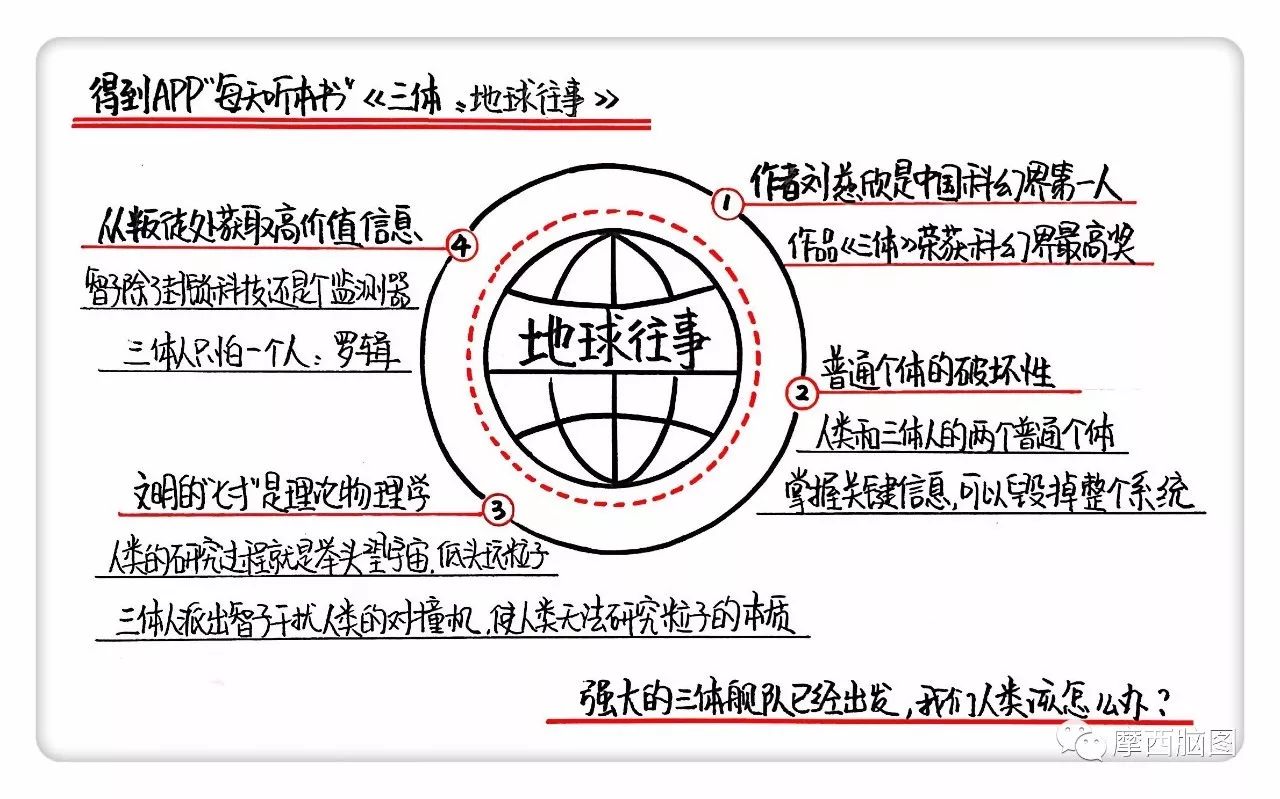 得到APP"每天听本书"《三体:地球往事》
地球往事
1
作者刘慈欣是中国科幻界第一人
作品《三体》荣获科幻界最高奖
2
普通个体的破坏性
人类和三体人的两个普通个体
掌握关键信息,可以毁掉整个系统
3
文明的"七寸"是理论物理学
人类的研究过程就是举头望宇宙,低头玩粒子
三体人派出智子干扰人类的对撞机,使人类无法研究粒子的本质
4
从叛徒处获取高价值信息
智子除了封锁科技还是个监测器
三体人只怕一个人:罗辑
强大的三体舰队已经出发,我们人类该怎么办?
摩西脑图